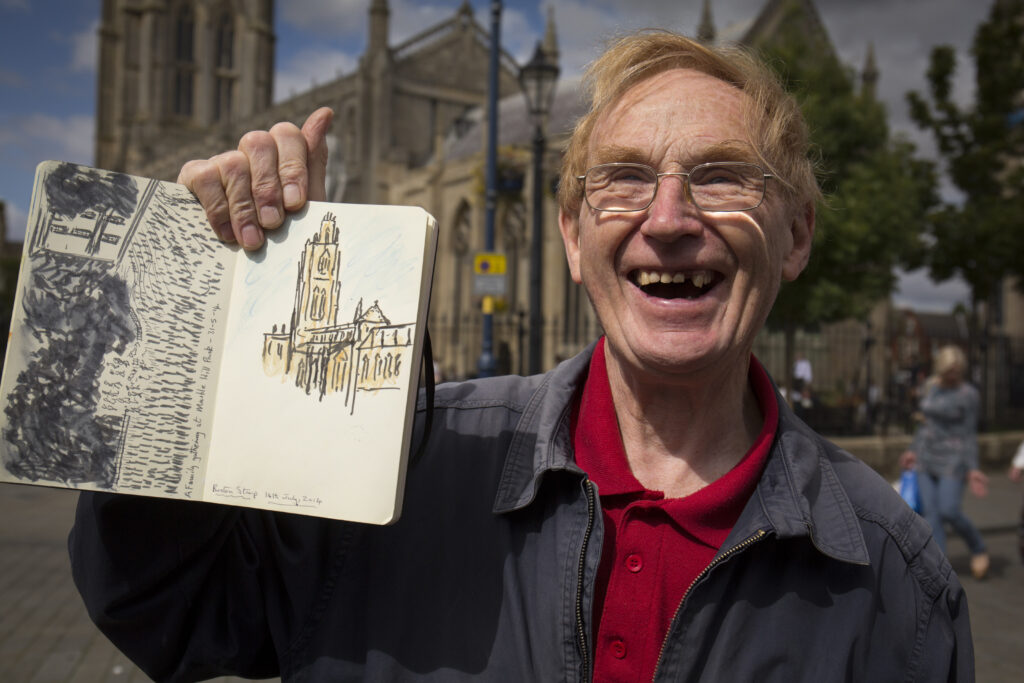 A Family gathering at Marble Hill Park - 31-5-14
Boston Stump 14th July, 2014